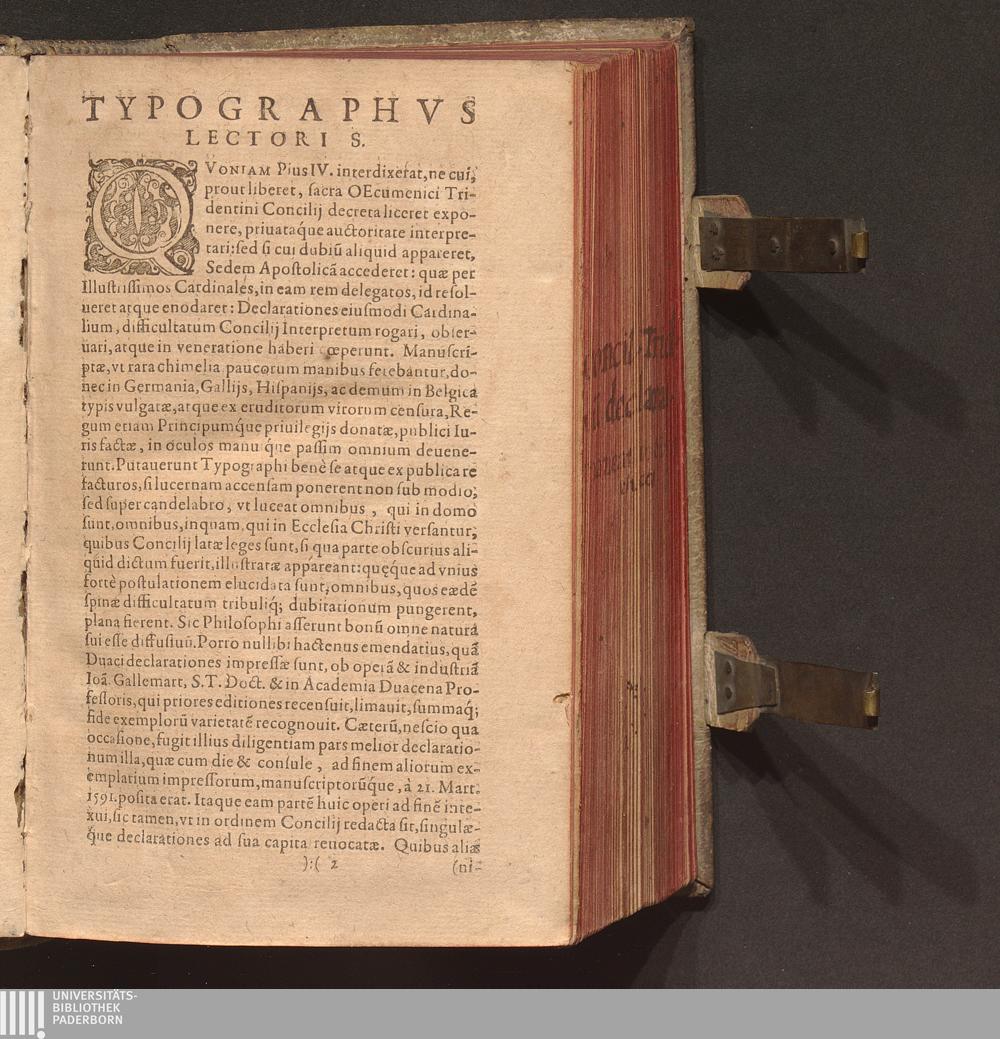 TYPOGRAPHVS
LECTORI S.
QVONIAM Pius IV. interdixerat, ne cui,
prout liberet, ſacra OEcumenici Tri-
dentini Concilij decreta liceret expo-
nere, priuataque auctoritate interpre-
tari: ſed ſi cui dubiũ aliquid appareret,
Sedem Apoſtolicã accederet: quæ per
Illuſtriſſimos Cardinales, in eam rem delegatos, id reſol-
ueret atque enodaret: Declarationes eiuſmodi Cardina-
lium, difficultatum Concilij Interpretum rogari, obſer-
uari, atque in veneratione haberi cœperunt. Manuſcri-
ptæ, vt rara chimelia paucorum manibus ferebantur, do-
nec in Germania, Gallijs, Hiſpanijs, ac demum in Belgica
typis vulgatæ, atque ex eruditorum virorum cenſura, Re-
gum etiam Principumq́ue priuilegijs donatæ, publici Iu-
ris factæ, in oculos manuſq́ue paſſim omnium deuene-
runt. Putauerunt Typographi benè ſe atque ex publica re
facturos, ſi lucernam accenſam ponerent non ſub modio;
ſed ſuper candelabro, vt luceat omnibus, qui in domo
ſunt, omnibus, inquam, qui in Eccleſia Chriſti verſantur,
quibus Concilij latæ leges ſunt, ſi qua parte obſcurius ali-
quid dictum fuerit, illuſtratæ appareant: quęque ad vnius
fortè poſtulationem elucidata ſunt, omnibus, quos eædẽ
ſpinæ difficultatum tribuliq́; dubitationum pungerent,
plana fierent. Sic Philoſophi aſſerunt bonũ omne naturâ
ſui eſſe diffuſiuũ. Porro nullibi hactenus emendatius, quã
Duaci declarationes impreſſæ ſunt, ob operã & induſtriã
Ioã. Gallemart, S.T. Doct. & in Academia Duacena Pro-
feſſoris, qui priores editiones recenſuit, limauit, ſummaq́;
fide exemplorũ varietatẽ recognouit. Cæterũ, neſcio qua
occaſione, fugit illius diligentiam pars melior declaratio-
num illa, quæ cum die & conſule, ad finem aliorum ex-
emplarium impreſſorum, manuſcriptorũq́ue, à 21. Mart.
1591. poſita erat. Itaque eam partẽ huic operi ad finẽ inte-
xui, ſic tamen, vt in ordinem Concilij redacta ſit, ſingulæ-
q́ue declarationes ad ſua capita reuocatæ. Quibus alias
):( 2 (ni-
concil. Trid
declara
UNIVERSITÄTS-
BIBLIOTHEK
PADERBORN